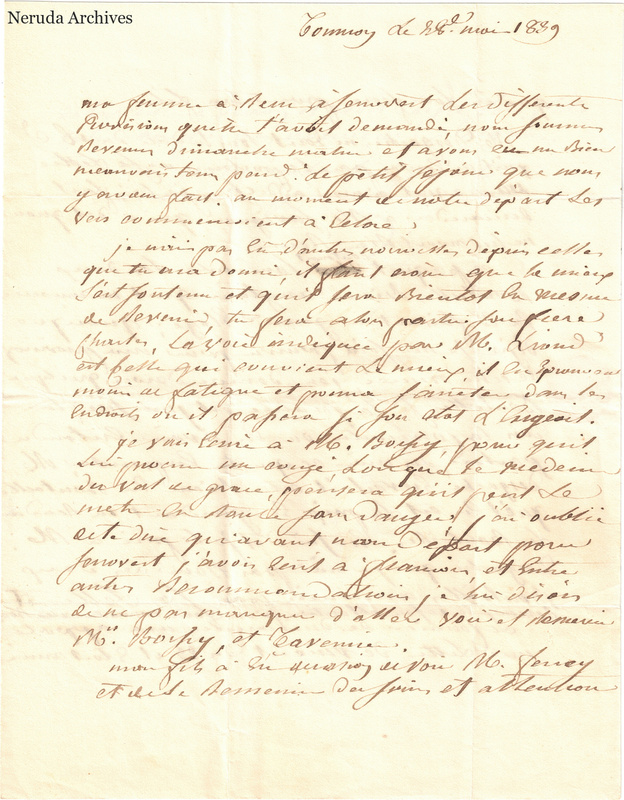 Neruda Archives
le 28e mai 1839
ma femme a Remi à fonovert les differente
Provisions quelle t'avoit demandé, nous sommes
Revenus dimanche matin et avons eu un Bien
mauvais tems pend. le petit séjour que nous
y avons fait. au moment de notre départ les
vers commencoient à Eclore
je n'ai pas Eu d'autres nouvelles depuis celles
que tu m'a donné, il faut croire que le mieux
s'est soutenu et qu'il sera Bientot En mesure
de Revenir, tu fera alors partir son frere
Charles, La voie indiquée par M.
est celle qui convient le mieux il En Eprouvera
moins de fatigue et pourra s'arréter dans les
Endroits ou il passera si son Etat L'Exigeoit.
je vais Ecrire à M. Boissy, pour qu'il
lui procure un congé Lorsque le medecin
du val de grace, pensera qu'il peut se
metre En Route sans danger, j'ai oublié
de te dire qu'avant notre départ pour
fonovert j'avois Ecrit à francois, et Entre
autres Recommandations je lui disois
de ne pas manquer d'aller voir et Remercier
Mrs. Boissy, et Tavernier.
mon fils à Eu occasion de voir M. ferroy
et de le Remercier des soins et attention